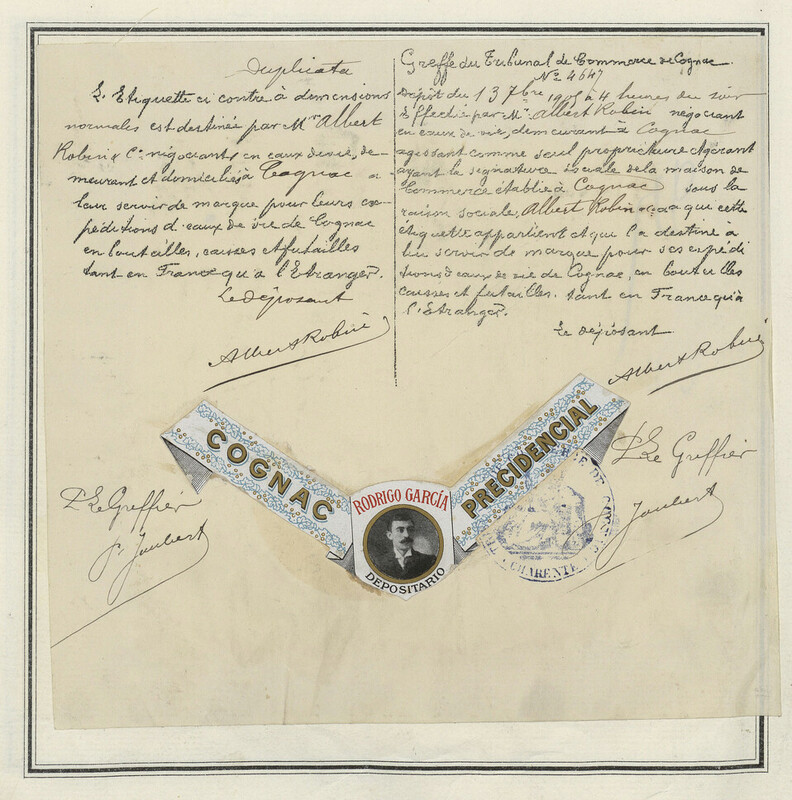 Duplicata
L'Etiquette ci contre à dimensions
normales est destinée par Mr Albert
Robin & Cie négociants en eaux de vie, de-
meurant et domiciliés à Cognac a
leur servir de marque pour leurs ex-
péditions d'eaux de vie de Cognac
en bouteilles, caisses et futailles
tant en France qu'à l'Etranger.
Le déposant
Albert Robin
Greffe du Tribunal de Commerce de Cognac.
No 4647
Dépôt du 13 7bre à 4 heures du soir
Effectué par Mr Albert Robin négociant
en eaux de vie, demeurant à Cognac
agissant comme seul propriétaire et gérant
ayant la signature sociale de la maison de
Commerce établie à Cognac sous la
raison sociale, Albert Robin & Cie a qui cette
étiquette appartient et qui l'a destiné à
lui servir de marque pour ses expédi
tions d'eaux de vie de Cognac, en bouteilles
caisses et futailles, tant en France qu'à
l'Etranger.
Le déposant
Albert Robin
COGNAC
PRECIDENCIAL
RODRIGO GARCÍA
DEPOSITARIO
P. Le Greffier
Joubert
P. Le Greffier
Joubert
CHARENTE